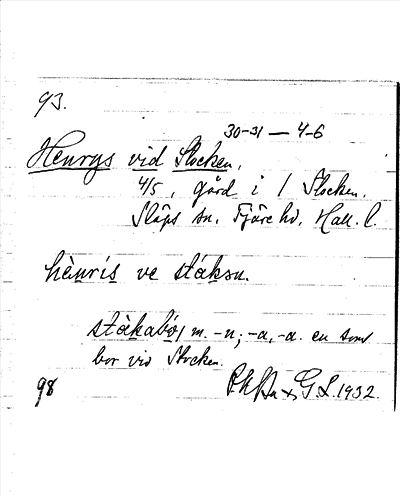 93.
30-31 — 4-6
Henrys vid Stocken,
4/5, gård i / Stocken.
Släps sn, Fjäre hd, Hall. l.
hènrís ve stákən.
stàkabó, m. -n; -a, -a. en som
bor vid Stocken.
98 G. L. 1932.